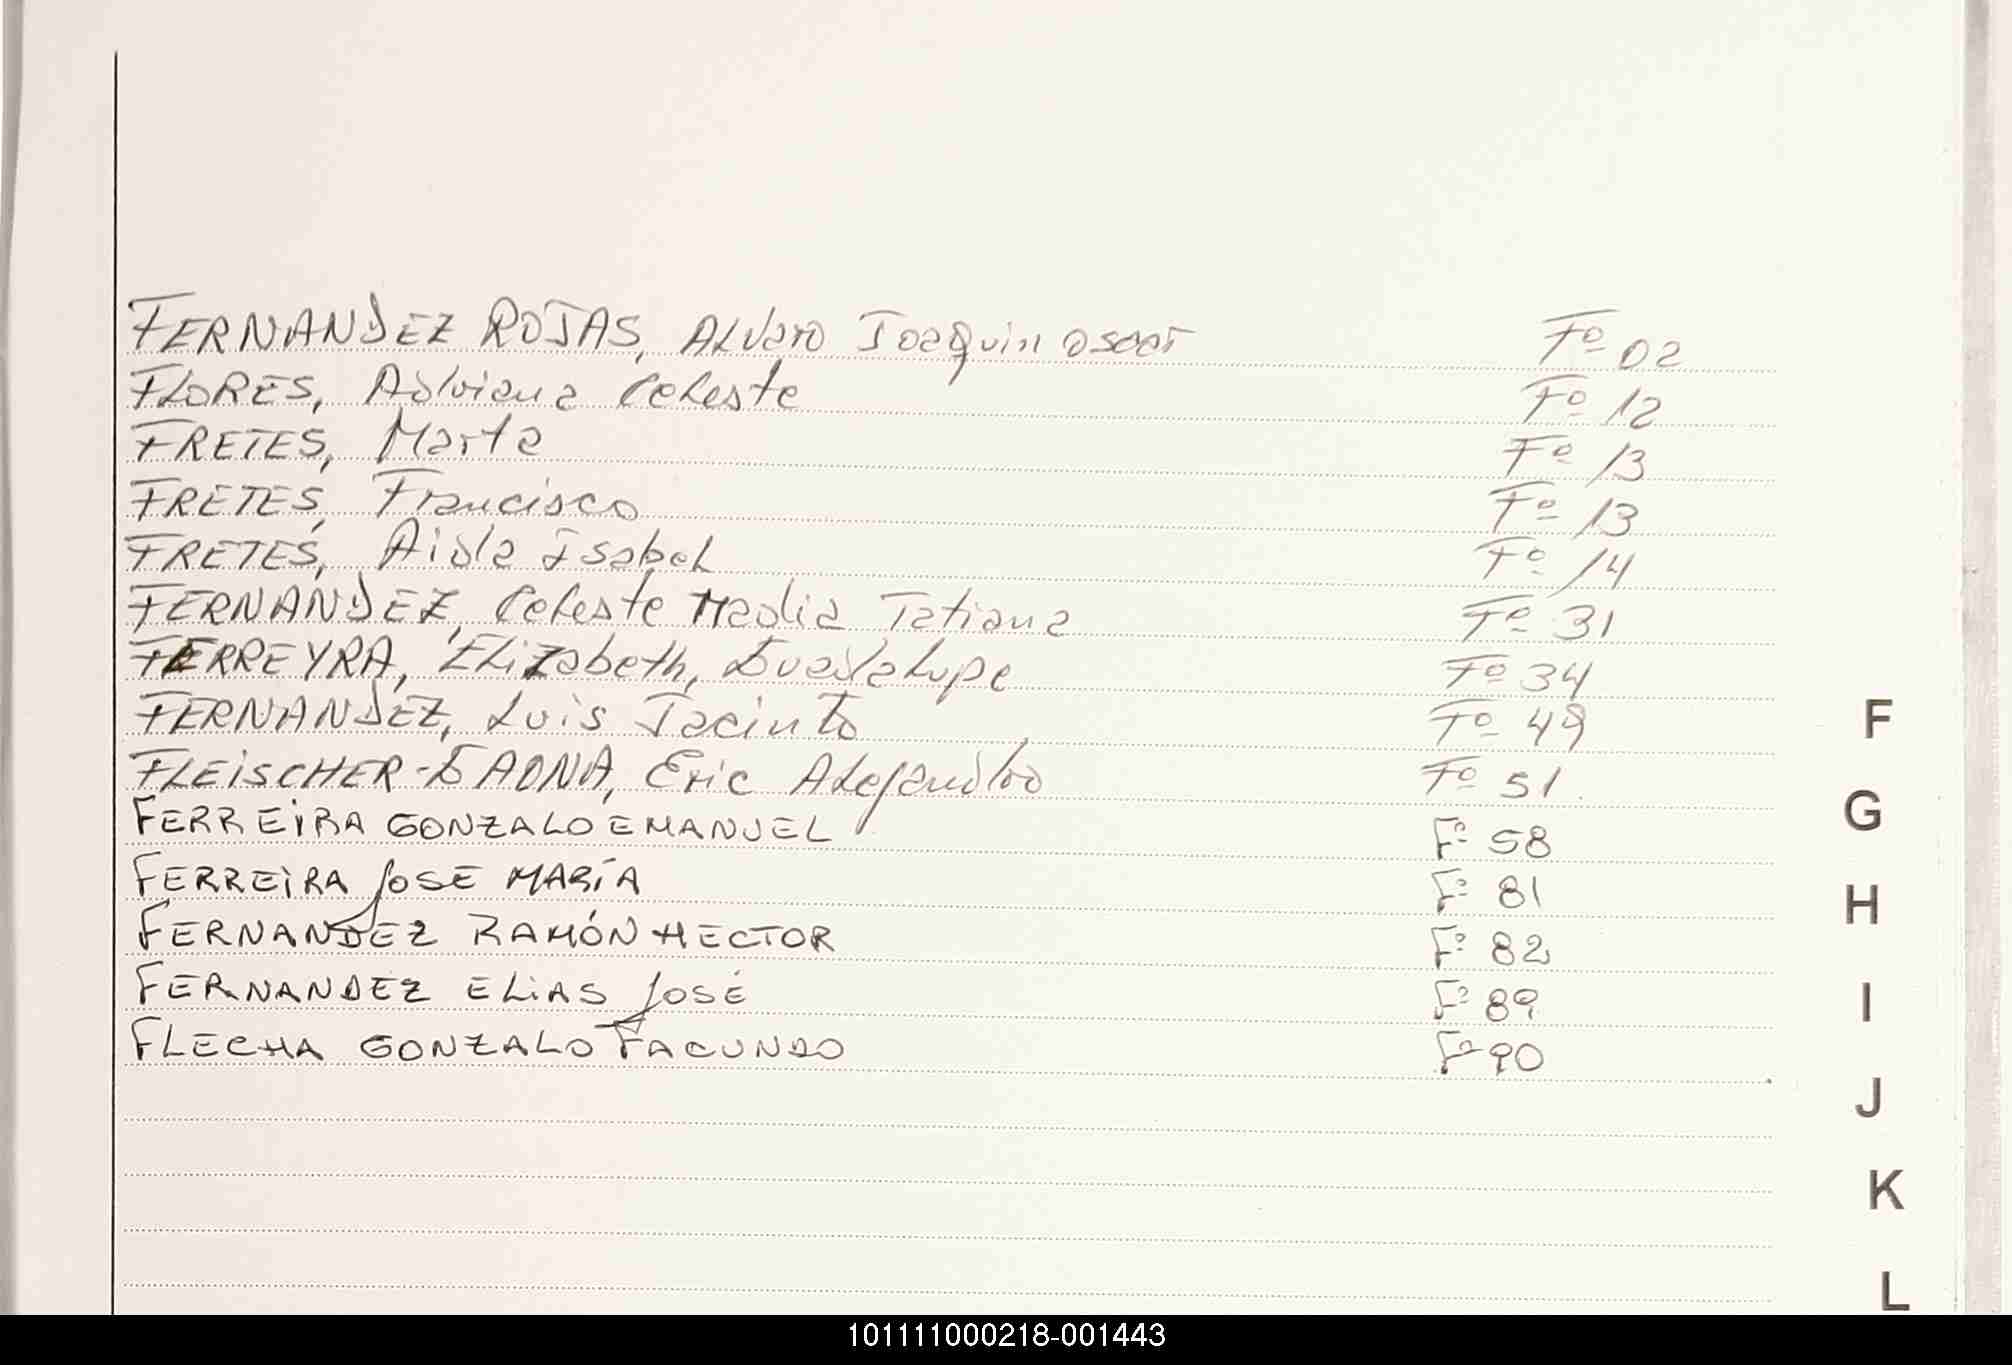 FERNANDEZ ROJAS, ALVaro Joaquin oscar Fº 02
FLORES, Adriana Celeste Fº 12
FRETES, Marta Fº 13
FRETES, Francisco Fº 13
FRETES, Aida Isabel Fº 14
FERNANDEZ, Celeste Tatiana Fº 31
FERREYRA, Elizabeth, Guadalupe Fº 34
FERNANDEZ, Luis Jacinto Fº 49
FLEiSCHER-GAONA, Eric Alejandro Fº 51
FERREiRA GONZALO EMANUEL Fº 58
FERREiRA JOSE MARÍA Fº 81
FERNANDEZ RAMÓN HECTOR Fº 82
FERNANDEZ ELiAS JOSÉ Fº 89
FLECHA GONZALO FACUNDO Fº 90
F
G
H
I
J
K
L
101111000218-001443